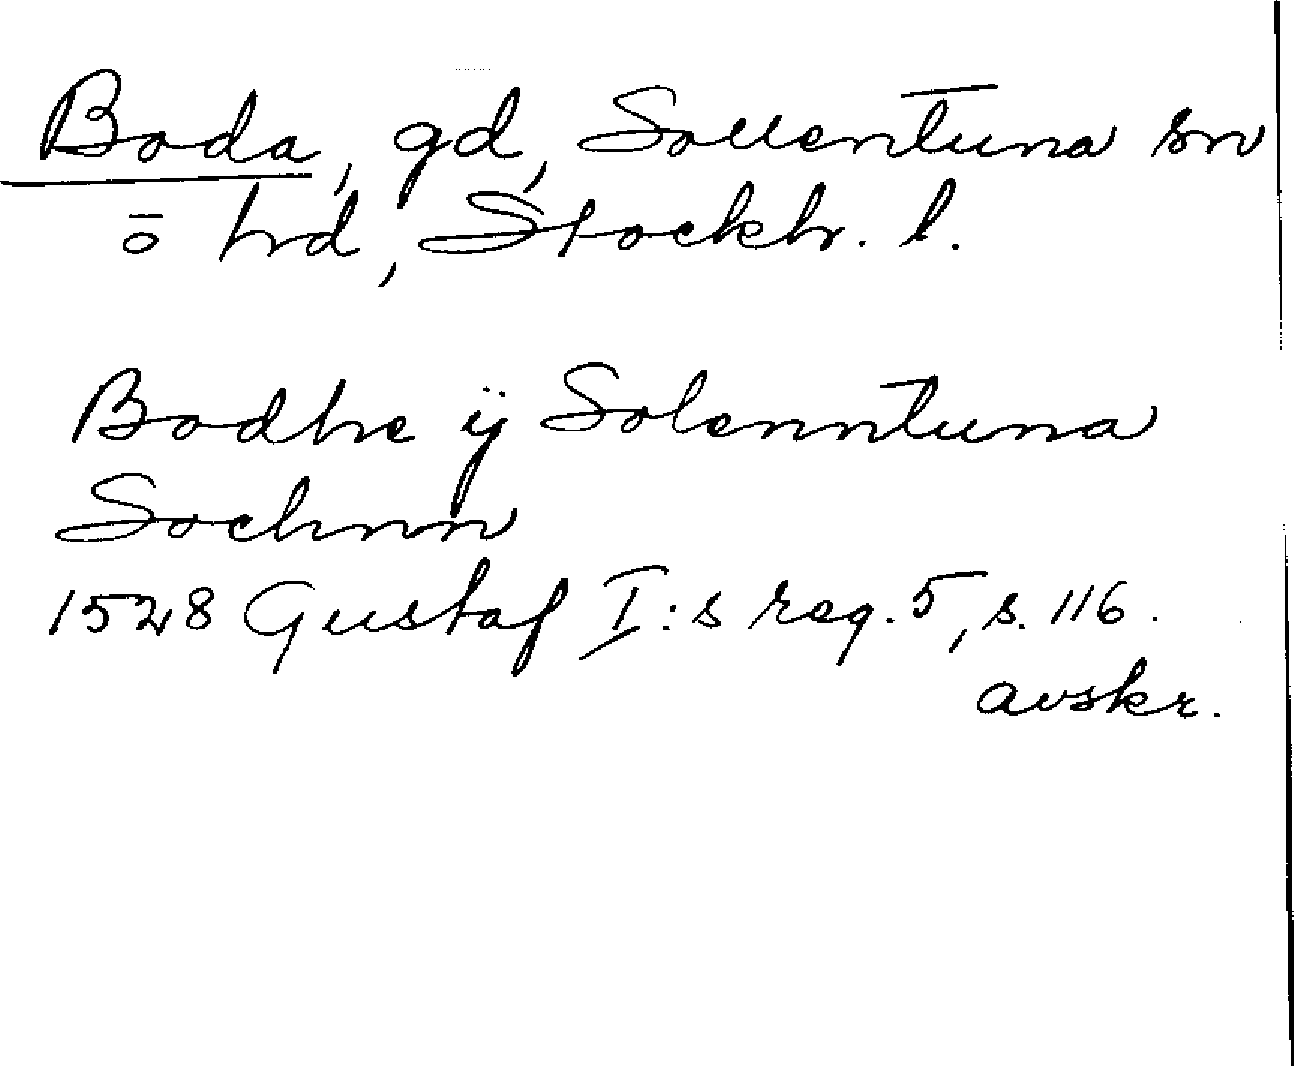 Boda, gd, Sollentuna sn
ō hd, Stockh. l.
Bodhe ij Solenntuna
Sochnn
1528 Gustaf I:s reg. 5, s. 116.
avskr.